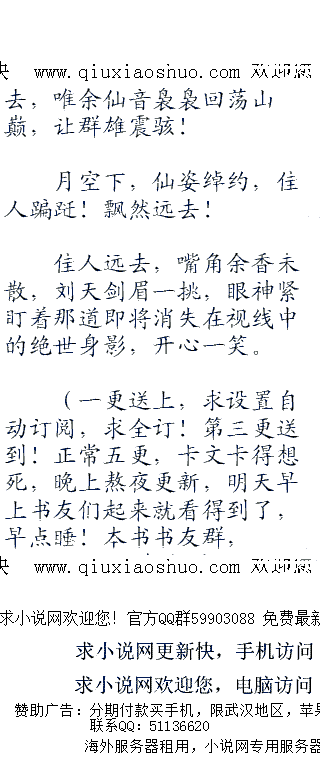 快 www.qiuxiaoshuo.com 欢迎您
去，唯余仙音袅袅回荡山
巅，让群雄震骇！
月空下，仙姿绰约，佳
人蹁跹！飘然远去！
佳人远去，嘴角余香未
散，刘天剑眉一挑，眼神紧
盯着那道即将消失在视线中
的绝世身影，开心一笑。
（一更送上，求设置自
动订阅，求全订！第三更送
到！正常五更，卡文卡得想
死，晚上熬夜更新，明天早
上书友们起来就看得到了，
早点睡！本书书友群，
快 www.qiuxiaoshuo.com 欢迎您
求小说网欢迎您！官方QQ群59903088 免费最新
求小说网更新快，手机访问
求小说网欢迎您，电脑访问
赞助广告：分期付款买手机，限武汉地区，苹果
联系QQ：51136620
海外服务器租用，小说网专用服务器